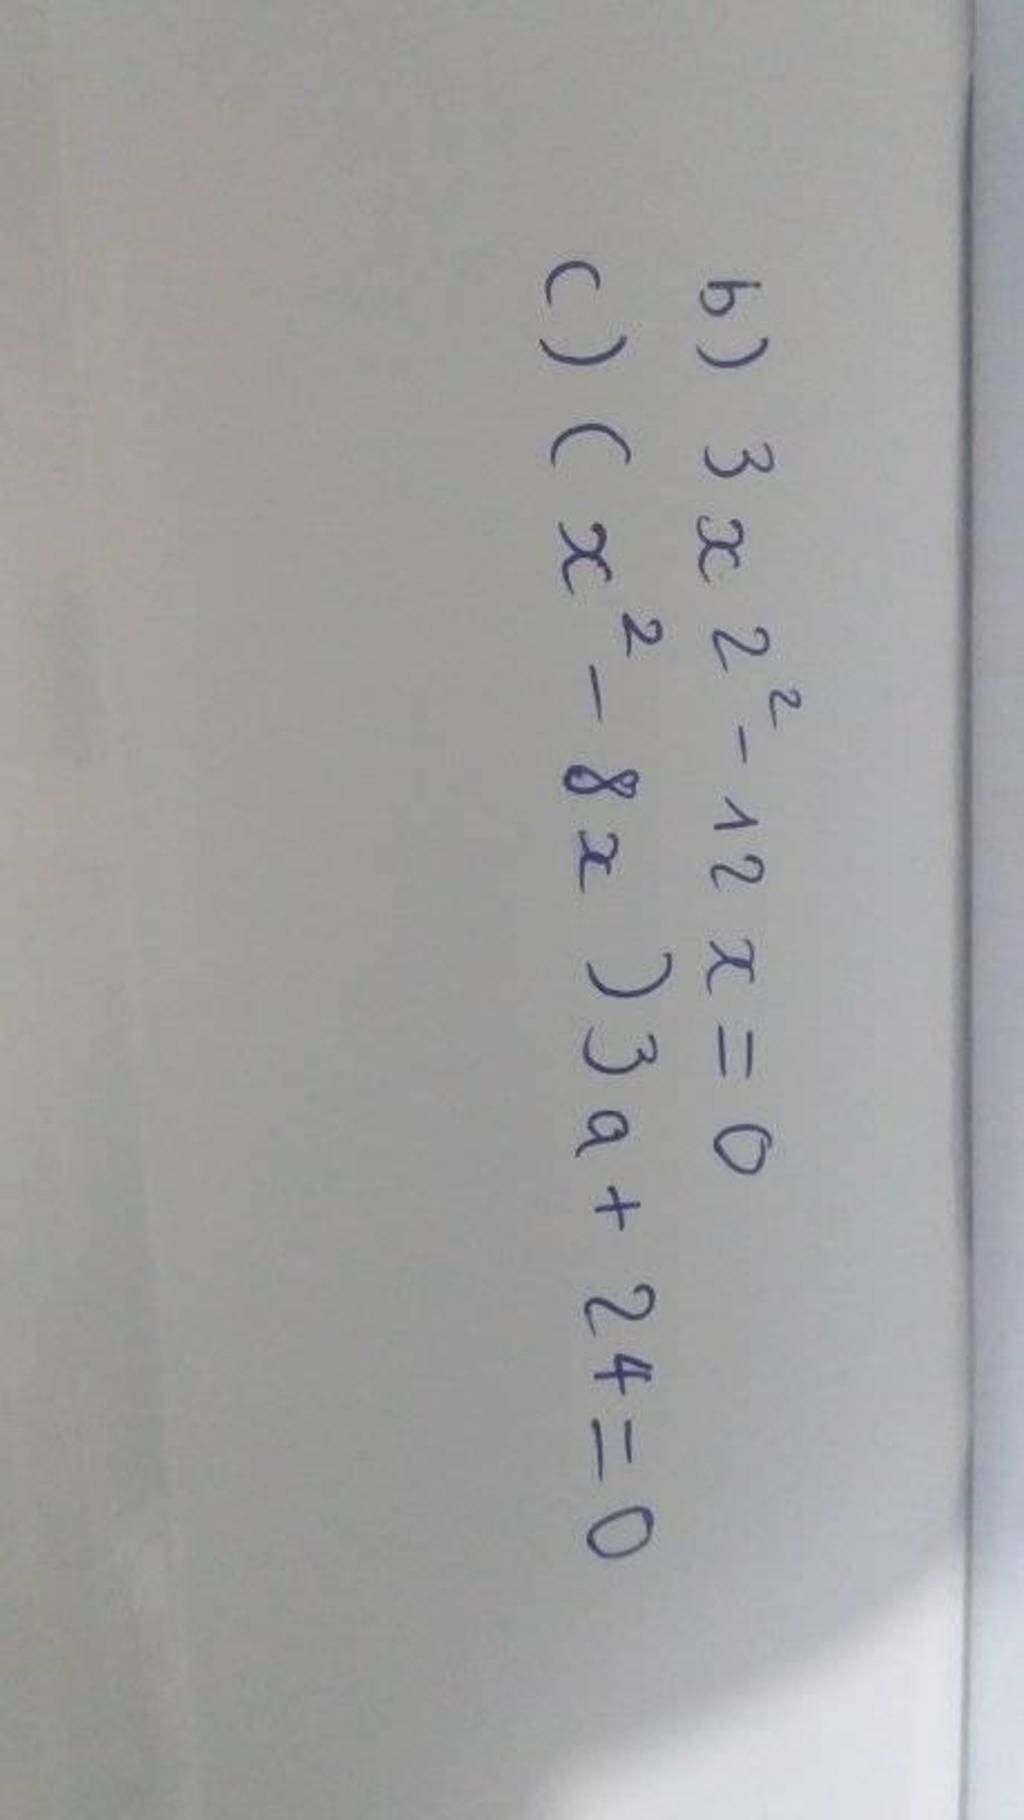 b) 3x2² - 12x = 0
c) (x² - 8x) 3a + 24 = 0